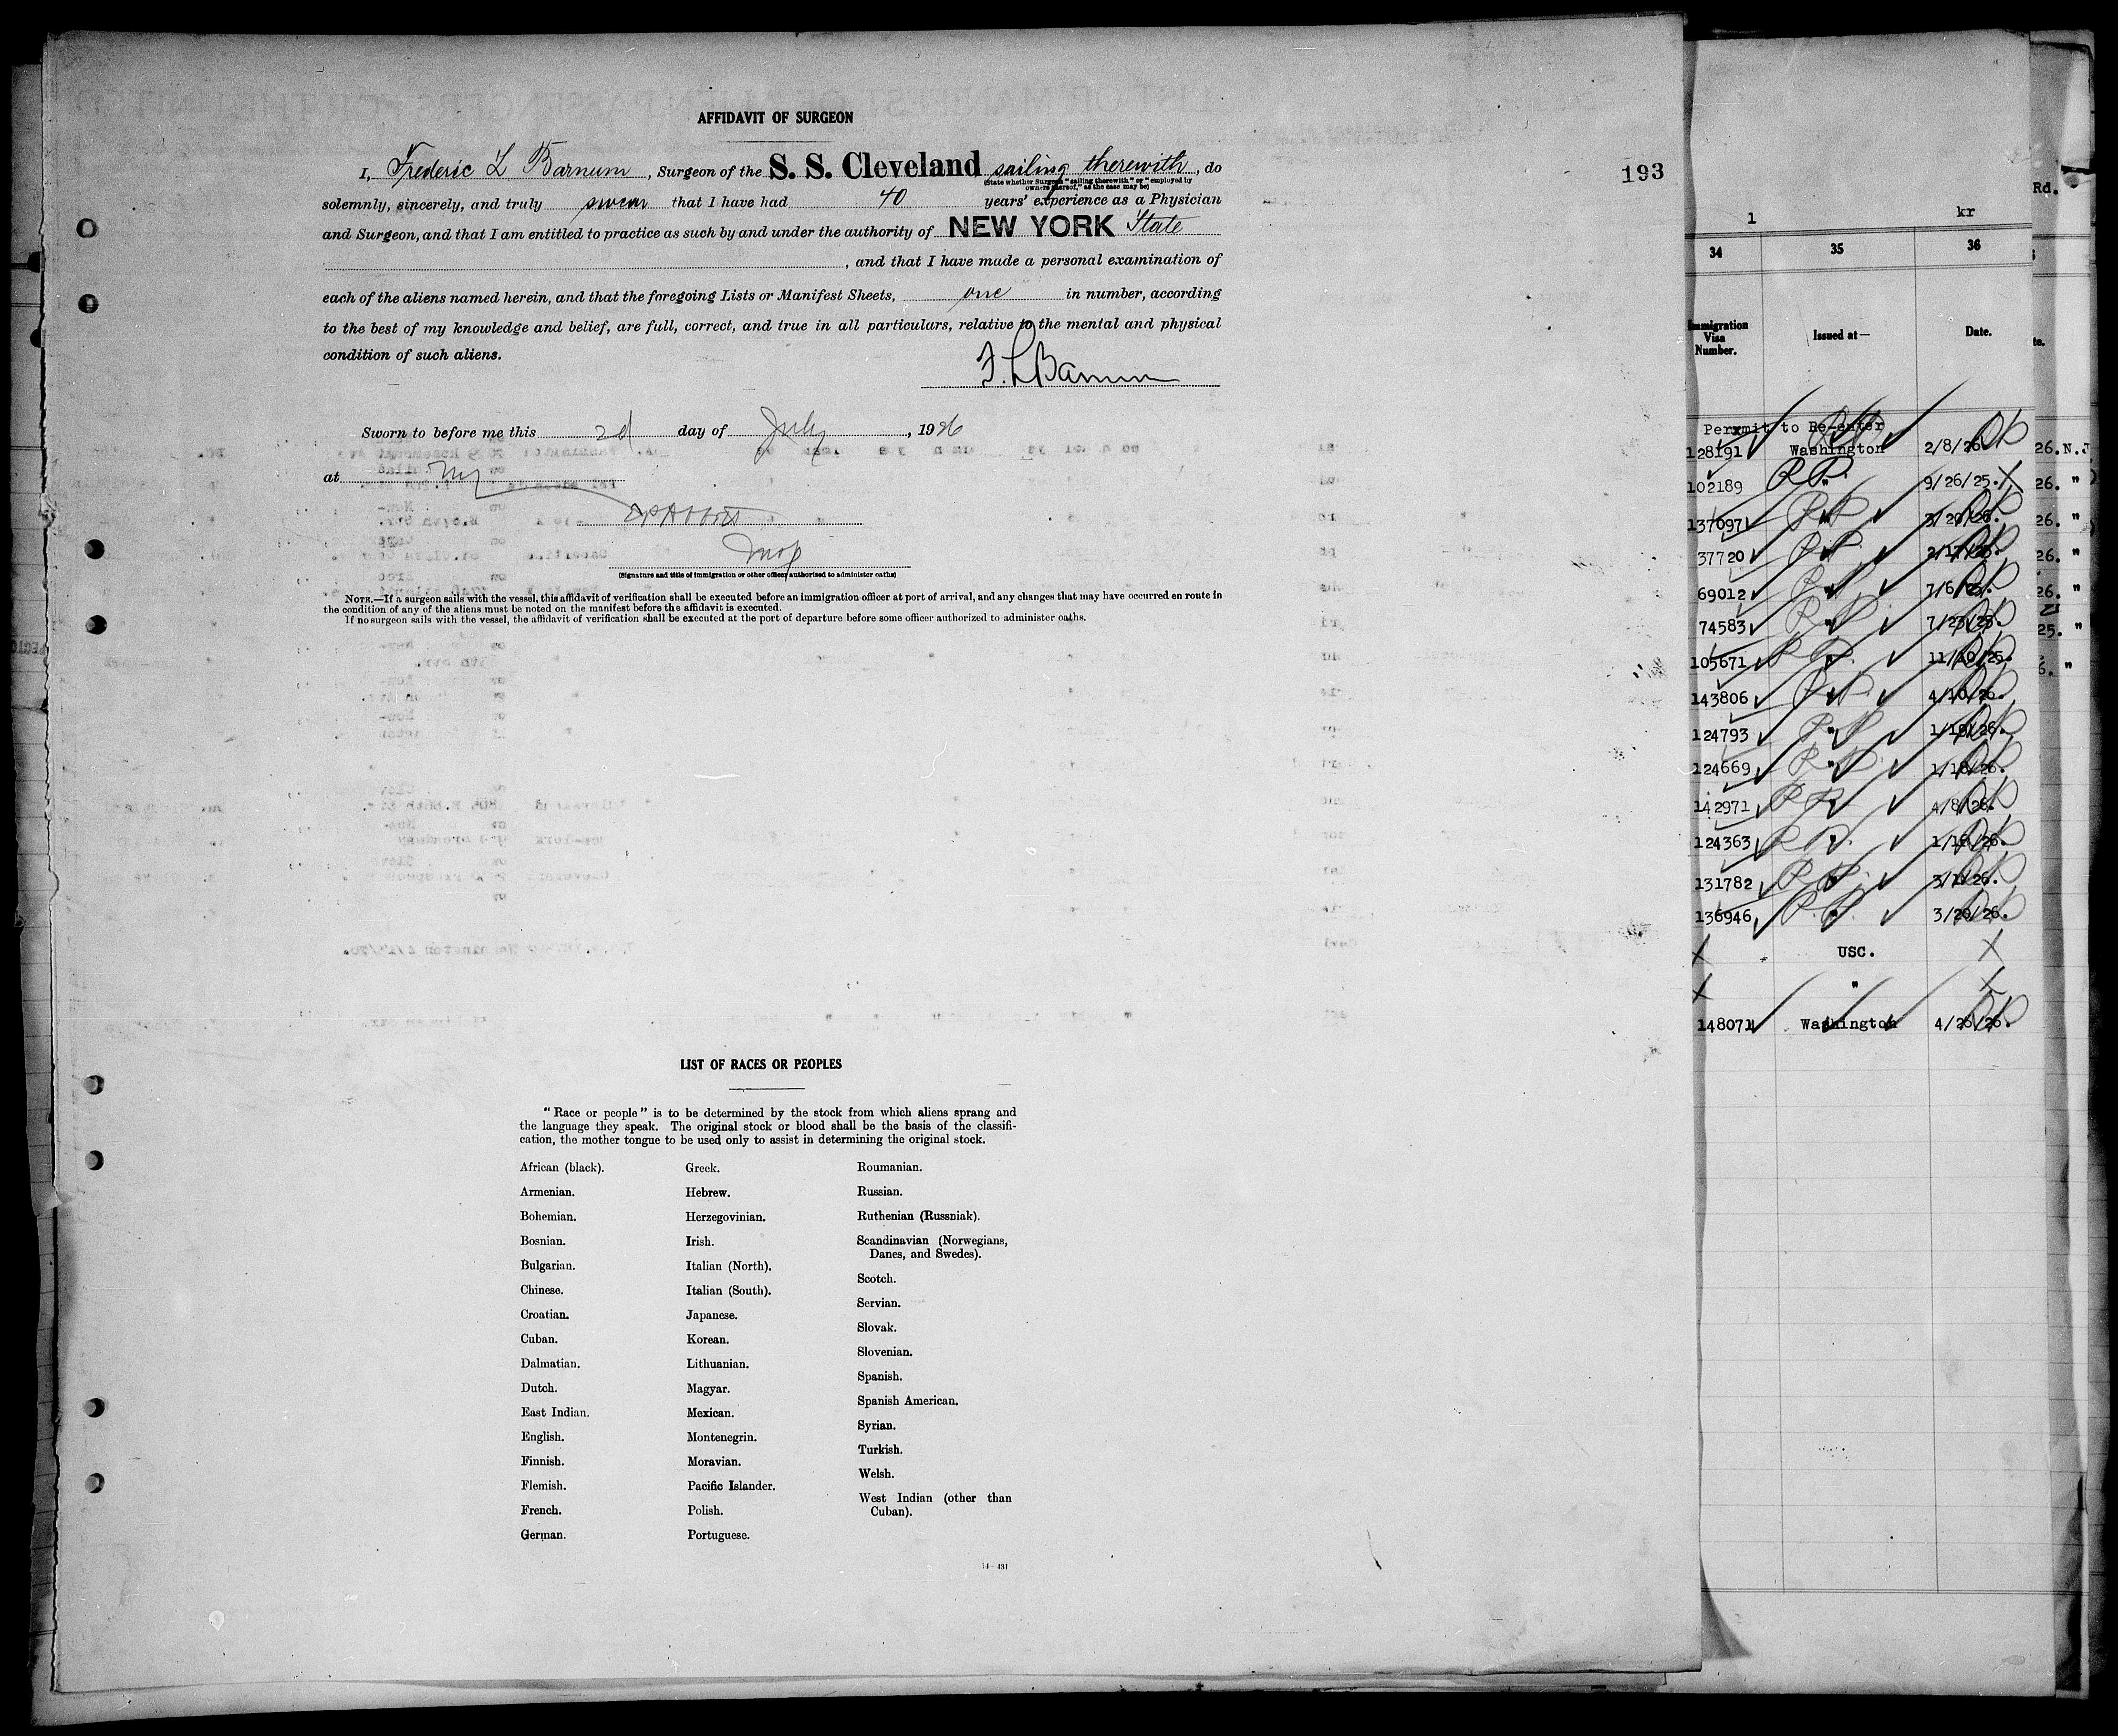 AFFIDAVIT OF SURGEON
I, Frederic L Barnum, Surgeon of the S. S. Cleveland sailing therewith, do
(State whether Surgeon "sailing therewith" or "employed by
owners thereof," as the case may be)
solemnly, sincerely, and truly swear that I have had 40 years' experience as a Physician
and Surgeon, and that I am entitled to practice as such by and under the authority of NEW YORK State
, and that I have made a personal examination of
each of the aliens named herein, and that the foregoing Lists or Manifest Sheets, one in number, according
to the best of my knowledge and belief, are full, correct, and true in all particulars, relative to the mental and physical
condition of such aliens.
F. L Barnum
Sworn to before me this 2d day of July, 1926
at NY
(Signature and title of immigration or other officer authorized to administer oaths)
NOTE.—If a surgeon sails with the vessel, this affidavit of verification shall be executed before an immigration officer at port of arrival, and any changes that may have occurred en route in
the condition of any of the aliens must be noted on the manifest before the affidavit is executed.
If no surgeon sails with the vessel, the affidavit of verification shall be executed at the port of departure before some officer authorized to administer oaths.
LIST OF RACES OR PEOPLES
"Race or people" is to be determined by the stock from which aliens sprang and
the language they speak. The original stock or blood shall be the basis of the classifi-
cation, the mother tongue to be used only to assist in determining the original stock.
African (black).
Armenian.
Bohemian.
Bosnian.
Bulgarian.
Chinese.
Croatian.
Cuban.
Dalmatian.
Dutch.
East Indian.
English.
Finnish.
Flemish.
French.
German.
Greek.
Hebrew.
Herzegovinian.
Irish.
Italian (North).
Italian (South).
Japanese.
Korean.
Lithuanian.
Magyar.
Mexican.
Montenegrin.
Moravian.
Pacific Islander.
Polish.
Portuguese.
Roumanian.
Russian.
Ruthenian (Russniak).
Scandinavian (Norwegians,
Danes, and Swedes).
Scotch.
Servian.
Slovak.
Slovenian.
Spanish.
Spanish American.
Syrian.
Turkish.
Welsh.
West Indian (other than
Cuban).
14—431
193
1 kr
34 35 36
Immigration
Visa
Number.
Issued at—
Date.
Permit to Re-enter
128191 Washington 2/8/26.
102189 " 9/26/25.
137097 " 3/20/26.
37720 " 2/17/26.
69012 " 7/6/25.
74583 " 7/23/25.
105671 " 11/10/25.
143806 " 4/10/26.
124793 " 1/19/26.
124669 " 1/18/26.
142971 " 4/8/26.
124363 " 1/16/26.
131782 " 3/1/26.
136946 " 3/20/26.
X USC. X
X " X
148071 Washington 4/26/26.
Rd.
26.N.J
26. "
26. "
26. "
26. "
25. "
6. "